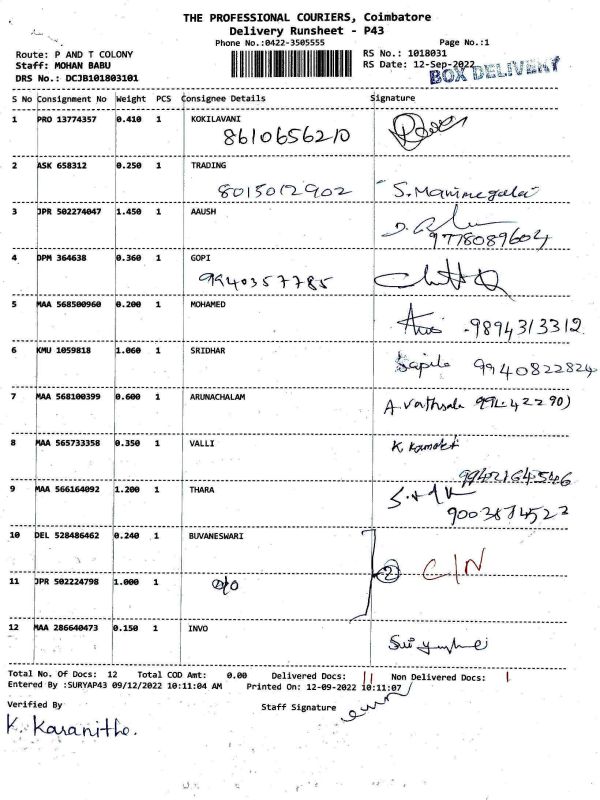 THE PROFESSIONAL COURIERS, Coimbatore
Delivery Runsheet - P43
Phone No.:0422-3505555
Page No.:1
Route: P AND T COLONY
RS No.: 1018031
Staff: MOHAN BABU
RS Date: 12-Sep-2022
BOX DELIVERY
DRS No.: DCJB101803101
S No Consignment No Weight PCS Consignee Details Signature
1 PRO 13774357 0.410 1 KOKILAVANI
8610656210
2 ASK 658312 0.250 1 TRADING
8015012902 S. Manimegalai
3 JPR 502274047 1.450 1 AAUSH
9778089604
4 DPM 364638 0.360 1 GOPI
9940357785
5 MAA 568500960 0.200 1 MOHAMED
9894313312
6 KMU 1059818 1.060 1 SRIDHAR
9940822824
7 MAA 568100399 0.600 1 ARUNACHALAM
8 MAA 565733358 0.350 1 VALLI
9 MAA 566164092 1.200 1 THARA
10 DEL 528486462 0.240 1 BUVANESWARI
2 C/N
11 JPR 502224798 1.000 1
12 MAA 286640473 0.150 1 INVO
Total No. Of Docs: 12 Total COD Amt: 0.00 Delivered Docs: 11 Non Delivered Docs: 1
Entered By :SURYAP43 09/12/2022 10:11:04 AM Printed On: 12-09-2022 10:11:07
Verified By Staff Signature